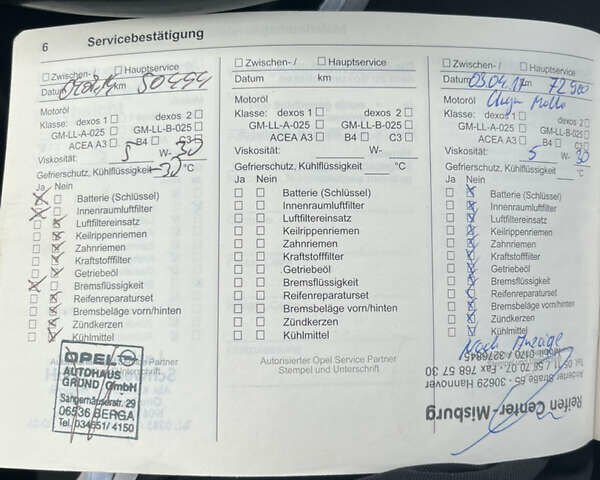 6 Servicebestätigung
☐ Zwischen- / ☐ Hauptservice
Datum 50444 km
Motoröl
Klasse: dexos 1 ☐ dexos 2 ☐
GM-LL-A-025 ☐ GM-LL-B-025 ☐
ACEA A3 ☐ B4 ☐ C3 ☐
Viskosität: 5 W- 30
Gefrierschutz, Kühlflüssigkeit -30 °C
Ja Nein
Batterie (Schlüssel)
Innenraumluftfilter
Luftfiltereinsatz
Keilrippenriemen
Zahnriemen
Kraftstofffilter
Getriebeöl
Bremsflüssigkeit
Reifenreparaturset
Bremsbeläge vorn/hinten
Zündkerzen
Kühlmittel
OPEL
AUTOHAUS
GRUND GmbH
Sangerhäuserstr. 29
06536 BERGA
Tel. 034651/ 4150
☐ Zwischen- / ☐ Hauptservice
Datum km
Motoröl
Klasse: dexos 1 ☐ dexos 2 ☐
GM-LL-A-025 ☐ GM-LL-B-025 ☐
ACEA A3 ☐ B4 ☐ C3 ☐
Viskosität: W-
Gefrierschutz, Kühlflüssigkeit °C
Ja Nein
☐ ☐ Batterie (Schlüssel)
☐ ☐ Innenraumluftfilter
☐ ☐ Luftfiltereinsatz
☐ ☐ Keilrippenriemen
☐ ☐ Zahnriemen
☐ ☐ Kraftstofffilter
☐ ☐ Getriebeöl
☐ ☐ Bremsflüssigkeit
☐ ☐ Reifenreparaturset
☐ ☐ Bremsbeläge vorn/hinten
☐ ☐ Zündkerzen
☐ ☐ Kühlmittel
Autorisierter Opel Service Partner
Stempel und Unterschrift
☐ Zwischen- / ☐ Hauptservice
Datum 03.04.17 72900 km
Motoröl
Klasse: dexos 1 ☐ dexos 2 ☐
GM-LL-A-025 ☐ GM-LL-B-025 ☐
ACEA A3 ☐ B4 ☐ C3 ☐
Viskosität: 5 W- 30
Gefrierschutz, Kühlflüssigkeit °C
Ja Nein
Batterie (Schlüssel)
Innenraumluftfilter
Luftfiltereinsatz
Keilrippenriemen
Zahnriemen
Kraftstofffilter
Getriebeöl
Bremsflüssigkeit
Reifenreparaturset
Bremsbeläge vorn/hinten
Zündkerzen
Kühlmittel
Nach Anzeige
Reifen Center-Misburg
Anderter Straße 65 · 30629 Hannover
Tel. 05 11 / 58 11 70 · Fax 768 57 30
Mobil 0170 / 3276845